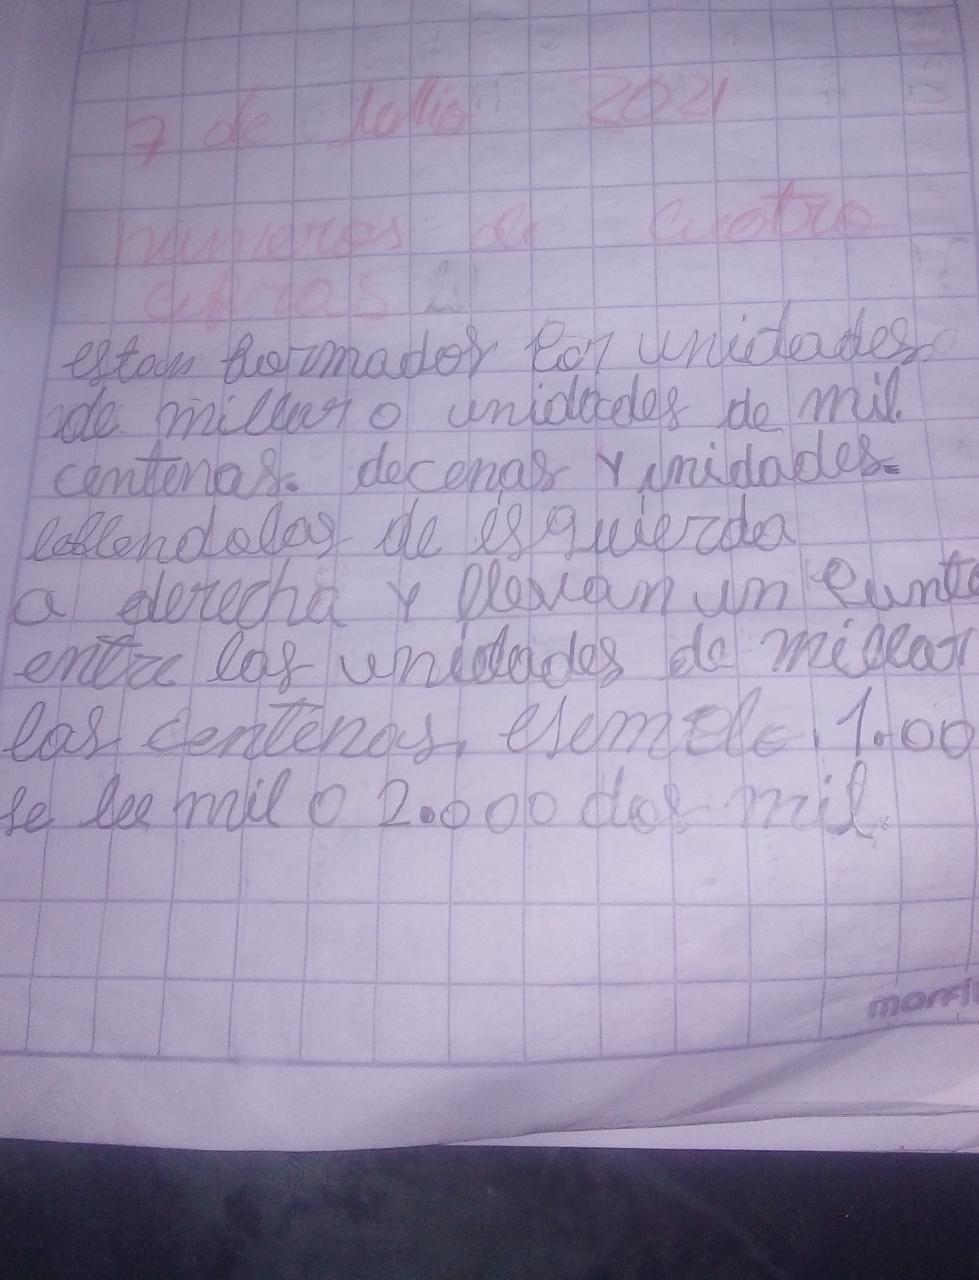 7 de Julio 2021
numeros de cuatro
cifras
estan formados por unidades
de millar o unidades de mil
centenas. decenas y unidades.
de isquierda
a derecha y llevan un punto
entre las unidades de millar
las centenas, ejemplo, 1.00
se lee mil o 2.000 dos mil.